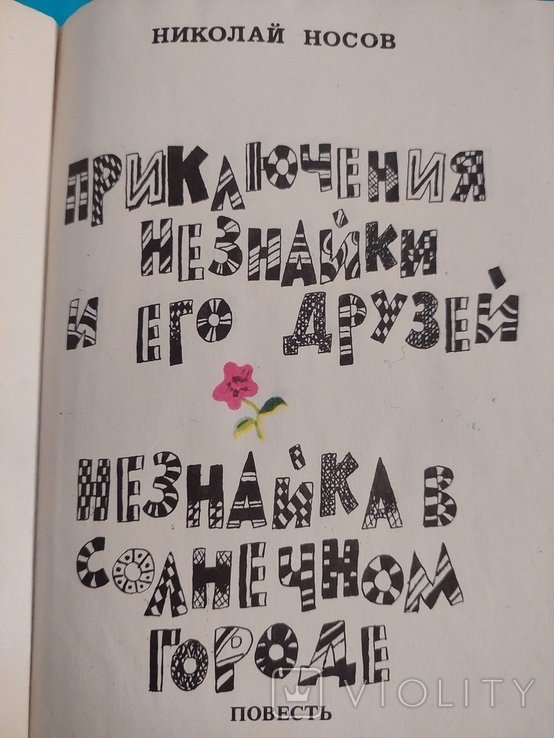 НИКОЛАЙ НОСОВ
ПРИКЛЮЧЕНИЯ
НЕЗНАЙКИ
И ЕГО ДРУЗЕЙ
НЕЗНАЙКА В
СОЛНЕЧНОМ
ГОРОДЕ
VIOLITY
ПОВЕСТЬ